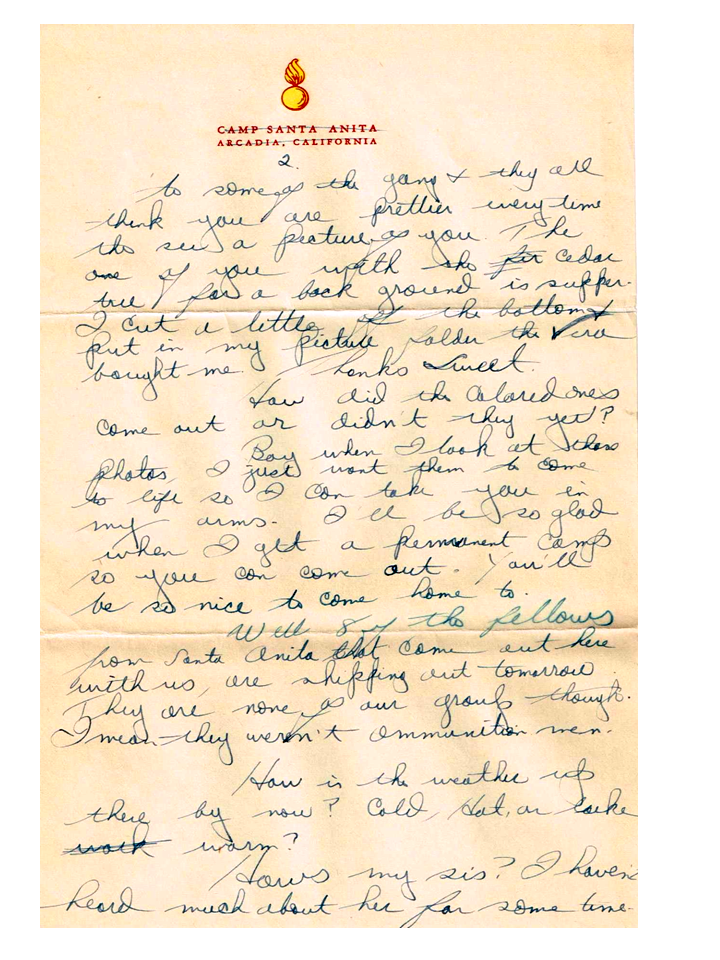 CAMP SANTA ANITA
ARCADIA, CALIFORNIA
2.
to some of the gang & they all
think you are prettier every time
the see a picture of you. The
one of you with the fir cedar
tree for a back ground is supper.
I cut a little off the bottom &
put in my picture folder the Vera
bought me. Thanks Sweet.
How did the Colored ones
come out or didn't they yet?
Boy when I look at those
photos, I just want them to come
to life so I can take you in
my arms. I'll be so glad
when I get a permanent camp
so you can come out. You'll
be so nice to come home to.
Well 8 of the fellows
from Santa Anita that come out here
with us, are shipping out tomorrow.
They are none of our group though.
I mean they weren't ammunition men.
How is the weather up
there by now? Cold, Hot, or
work warm?
Hows my sis? I haven't
heard much about her for some time